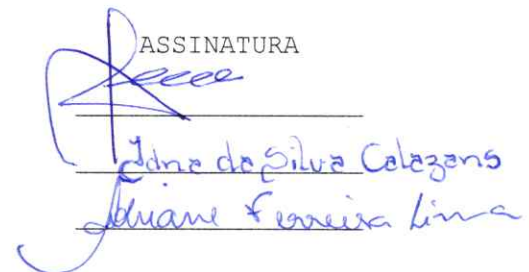 ASSINATURA
Idna da Silva Calazans
Adriane Ferreira Lima